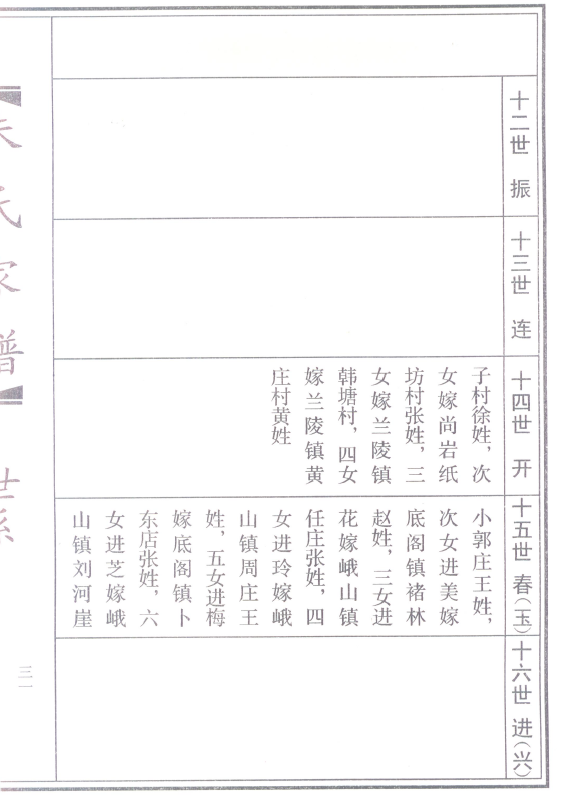 十二世 振
十三世 连
十四世 开
子村徐姓，次
女嫁尚岩纸
坊村张姓，三
女嫁兰陵镇
韩塘村，四女
嫁兰陵镇黄
庄村黄姓
十五世 春（玉）
小郭庄王姓，
次女进美嫁
底阁镇褚林
赵姓，三女进
花嫁峨山镇
任庄张姓，四
女进玲嫁峨
山镇周庄王
姓，五女进梅
嫁底阁镇卜
东店张姓，六
女进芝嫁峨
山镇刘河崖
十六世 进（兴）
氏家谱
世系
三一